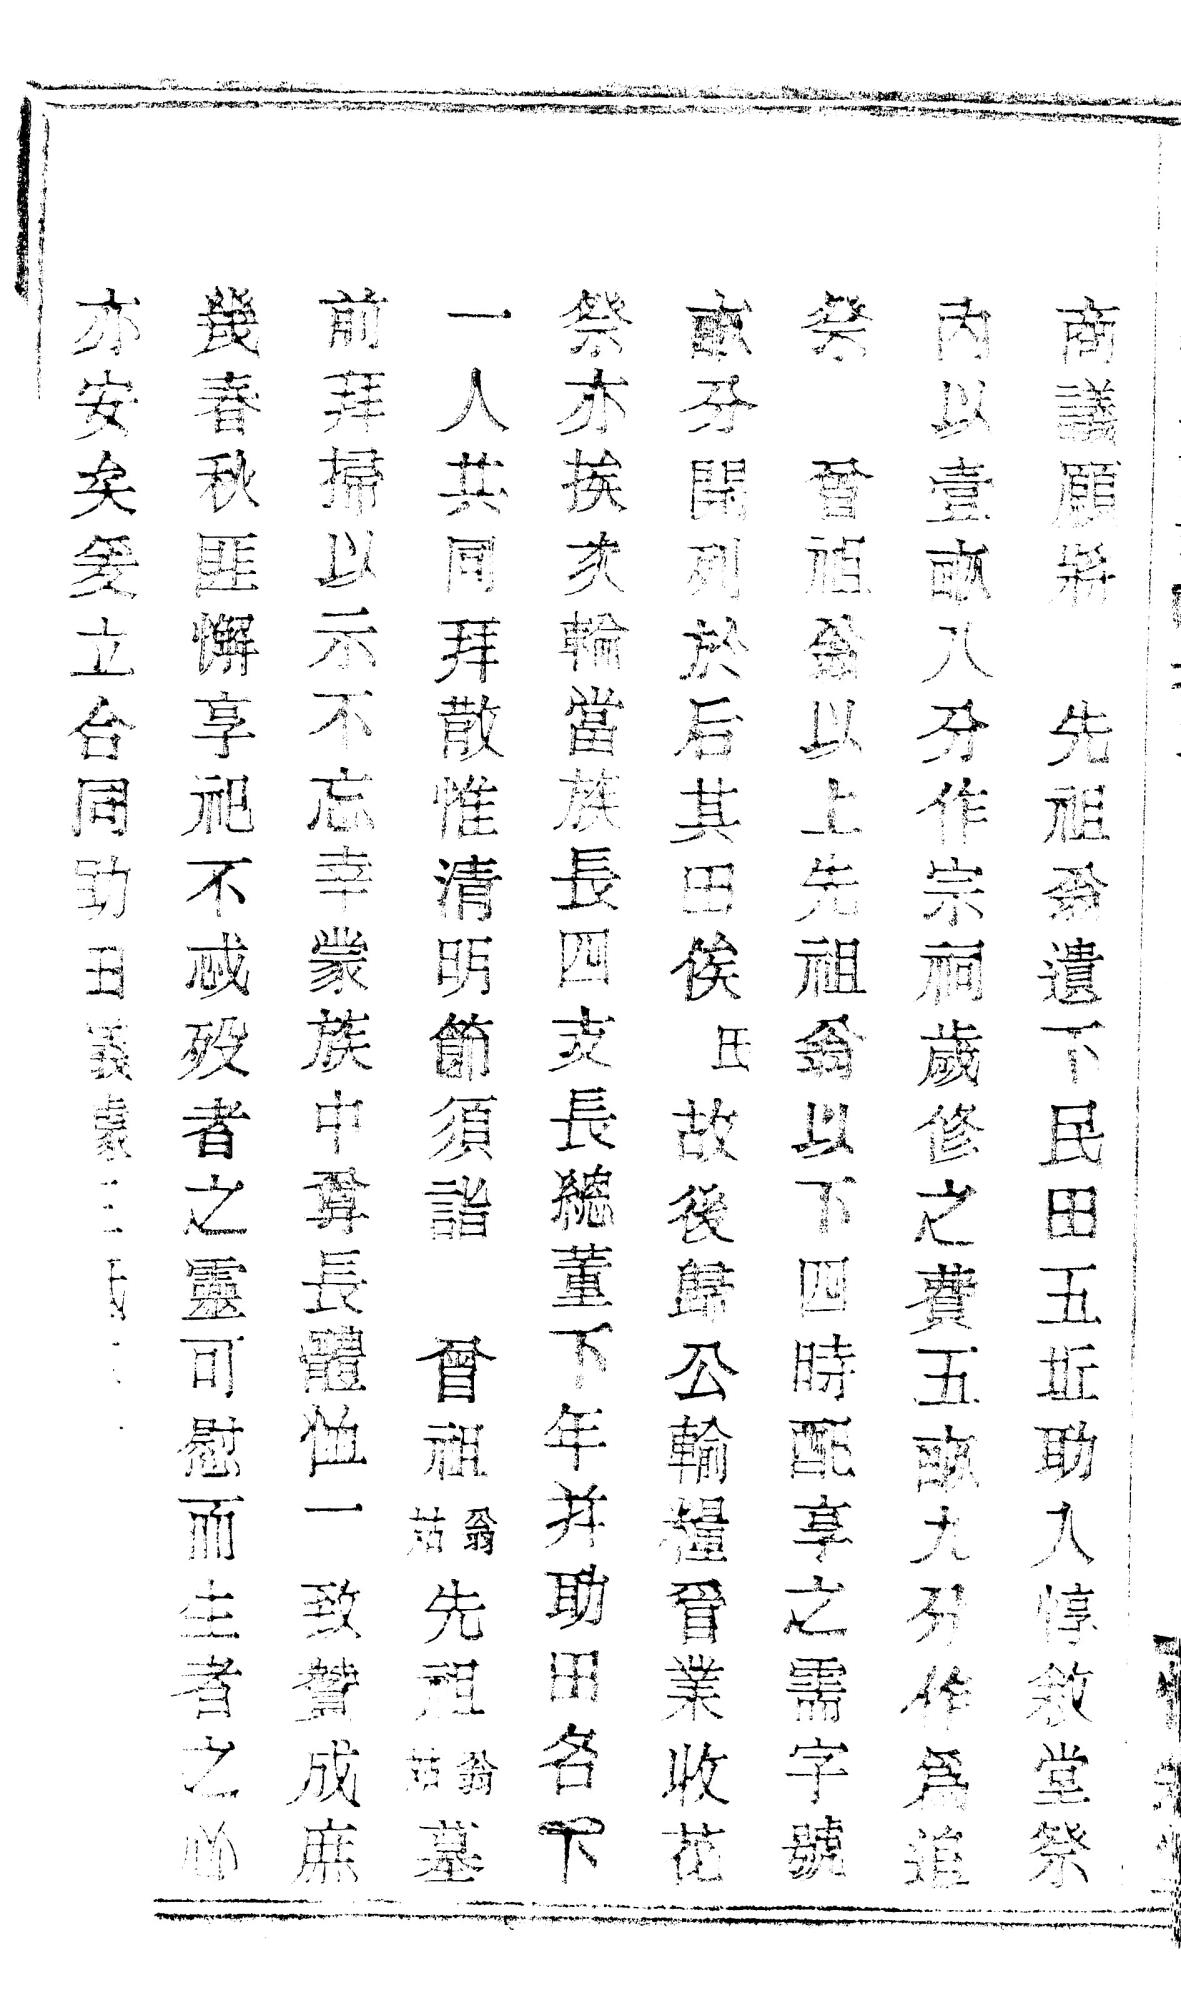 商議願將　先祖翁遺下民田五坵助入惇敘堂祭
內以壹畝八分作宗祠歲修之費五畝九分作爲追
祭　曾祖翁以上先祖翁以下四時配享之需字號
畝分開列於后其田俟氏故後歸公輸糧管業收花
祭亦挨次輪當族長四支長總董下年并助田各下
一人共同拜散惟清明節須詣　曾祖翁姑先祖翁姑墓
前拜掃以示不忘幸蒙族中尊長體恤一致贊成庶
幾春秋匪懈享祀不忒歿者之靈可慰而生者之心
亦安矣爰立合同助田議據